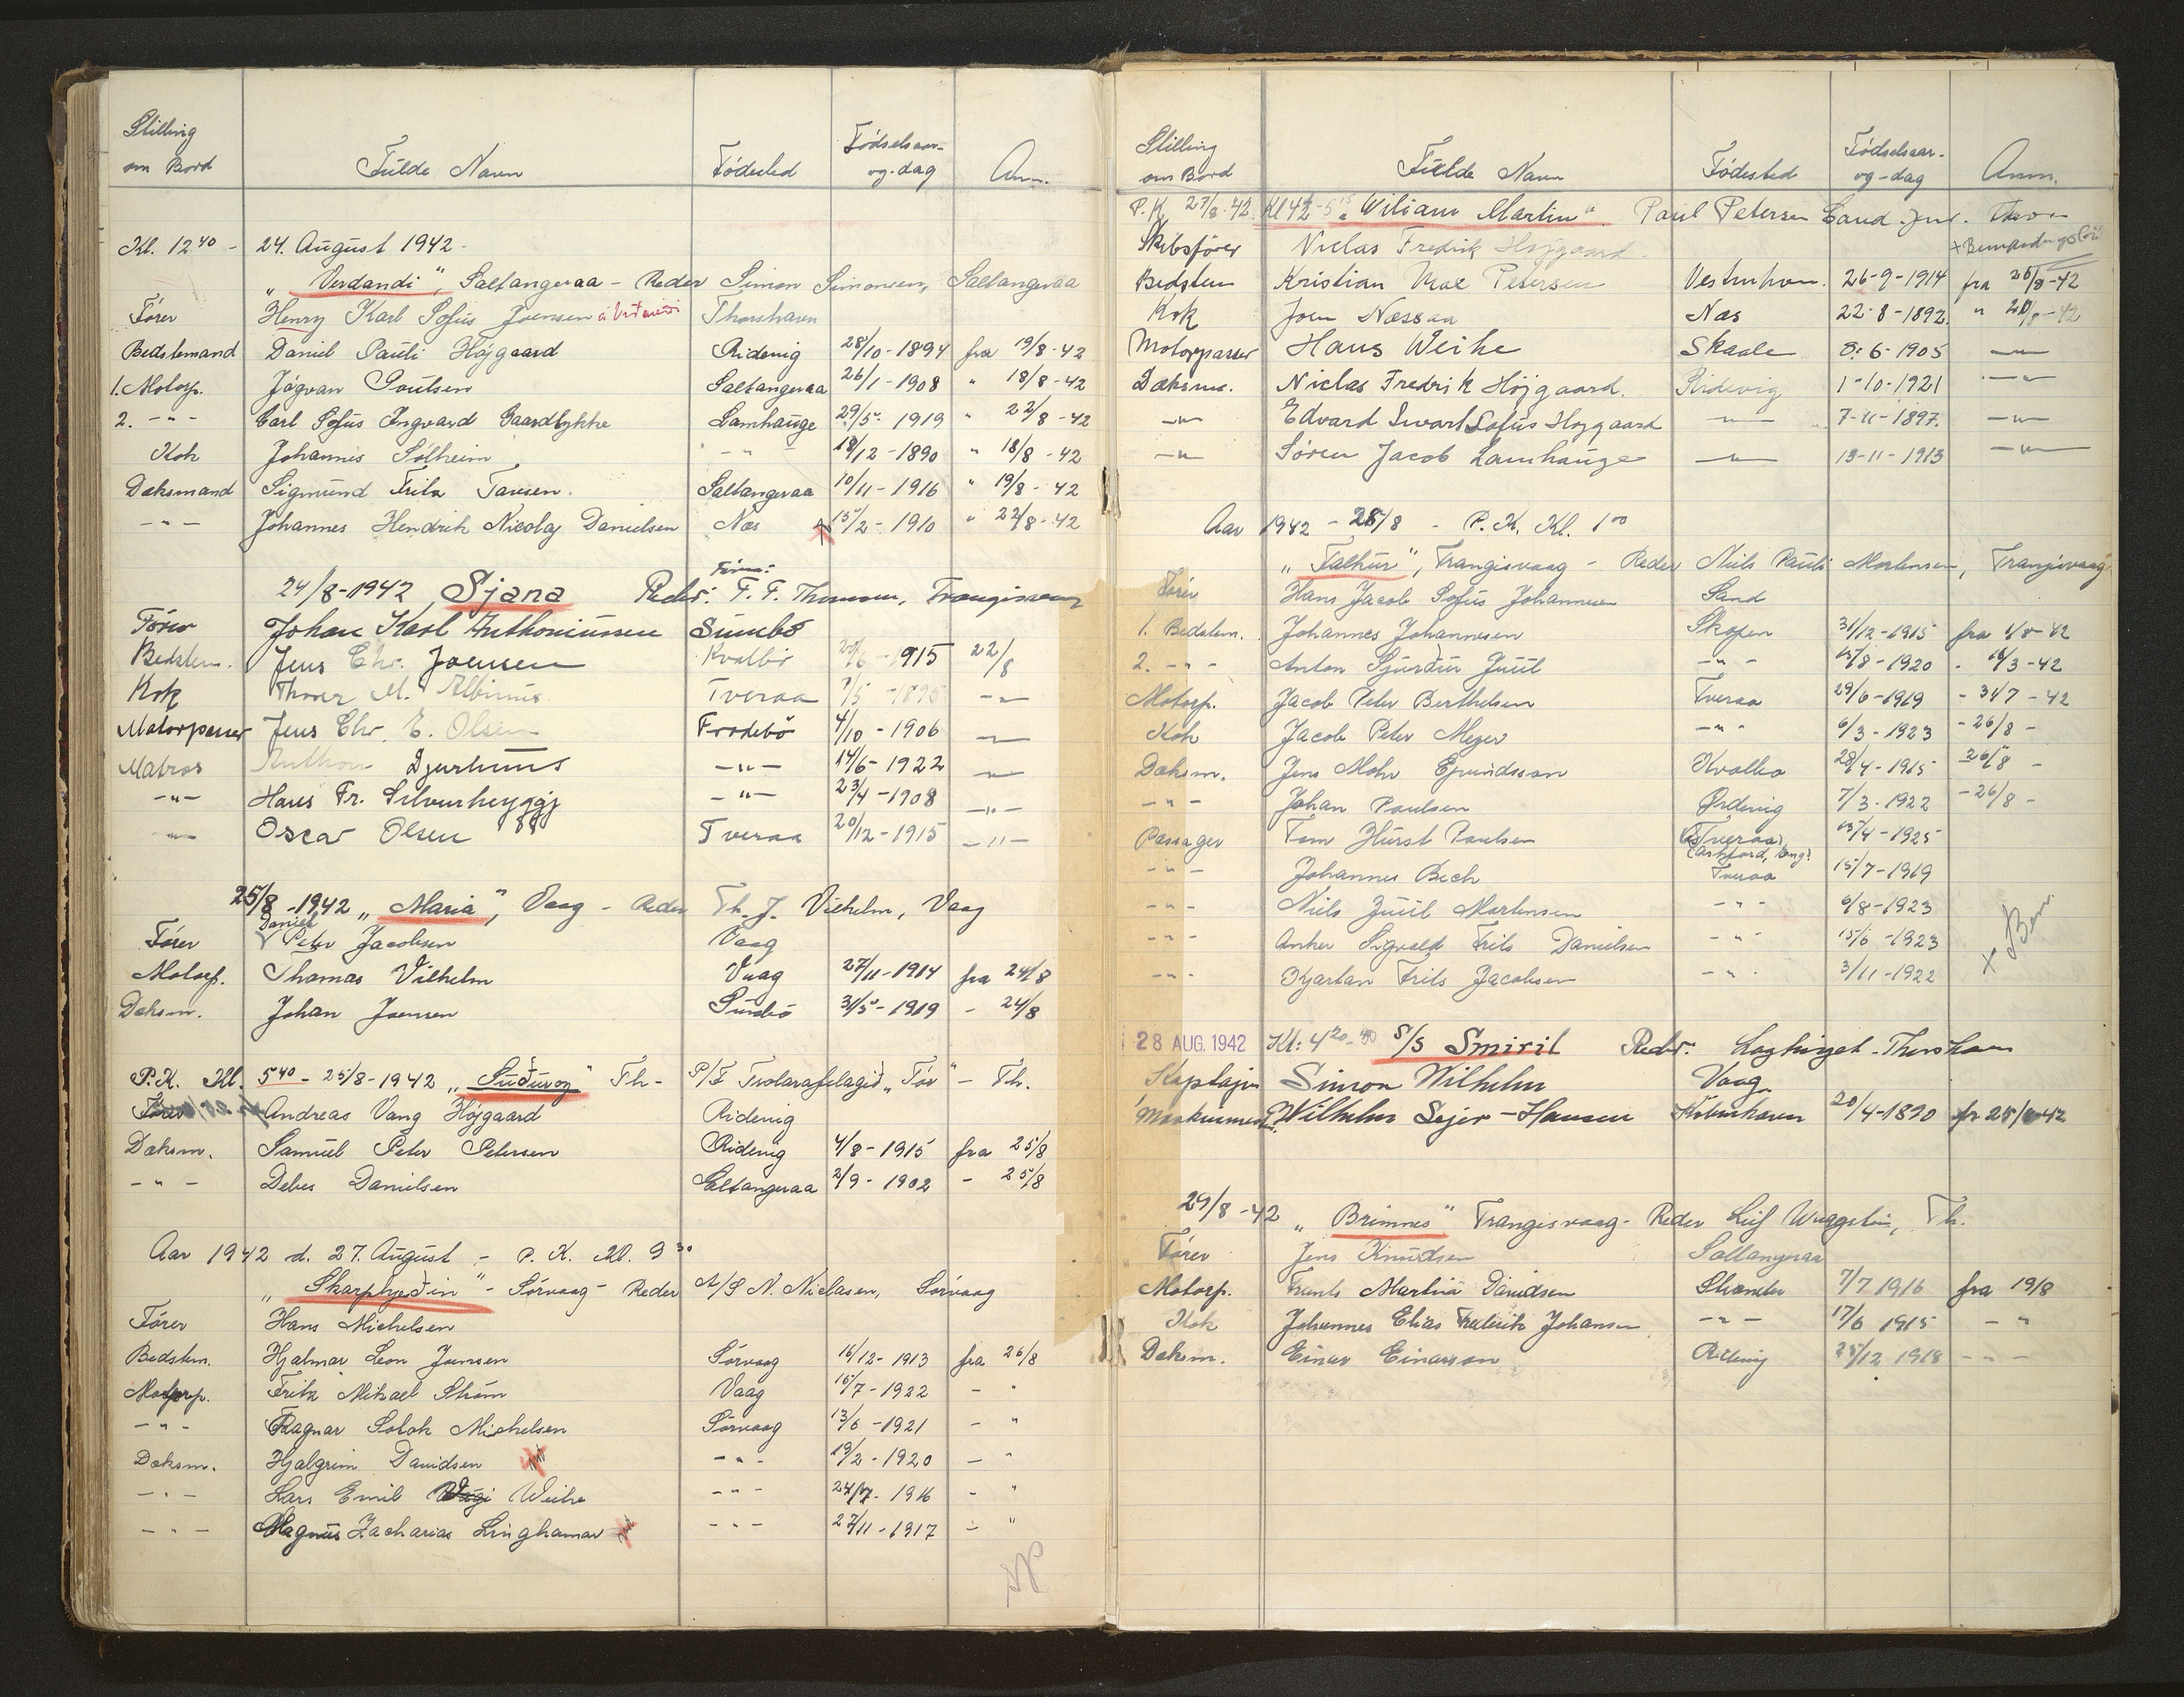 Stilling om Bord Fulde Navn Fødested Fødselsaar- og-dag Anm.
Kl. 12 40 - 24. August 1942 -
„Verdandi", Saltangeraa - Reder Simon Simonsen, Saltangeraa
Fører Henry Karl Sofus Joensen Thorshavn
Bedstemand Daniel Pauli Højgaard Ridevig 28/10-1894 fra 19/8-42
1. Motorp. Jógvan Poulsen Saltangeraa 26/1-1908 " 18/8-42
2. -"- Carl Sofus Ingvard Gaardlykke Lamhauge 29/5-1919 " 22/8-42
Kok Johannes Sólheim -"- 18/12-1890 " 18/8-42
Daksmand Sigmund Fritz Tausen. Saltangeraa 10/11-1916 " 19/8-42
-"- Johannes Hendrik Nicolaj Danielsen Næs 15/2-1910 " 22/8-42
24/8-1942 Sjana Reder: Firma: T. F. Thomsen, Trangisvaag
Fører Johan Karl Anthoniussen Sumbö
Bedstem. Jens Chr. Joensen Kvalbö -1915 22/8
Kok M. Albinus Tveraa
Motorpasser Jens Chr. E. Olsen Frodebö 4/10-1906 -"-
Matros Anthon Djurhuus -"- 14/6-1922 -"-
-"- Hans Fr. -"- 23/4-1908 -"-
-"- Oscar Olsen Tveraa 20/12-1915 -"-
25/8-1942 „Maria", Vaag - Reder Th. J. Vilhelm, Vaag
Fører Daniel Peter Jacobsen Vaag
Motorp. Thomas Vilhelm Vaag 27/11-1914 fra 24/8
Daksm. Johan Joensen Sumbö 31/5-1919 - 24/8
P.K. Kl. 5 40 - 25/8-1942 „Suduroy" Th- P/F Trolarafelagid „Tór" - Th.
Fører Andreas Vang Højgaard Ridevig
Daksm. Samuel Peter Petersen Ridevig 4/8-1915 fra 25/8
-"- Debes Danielsen Saltangeraa 2/9-1902 - 25/8
Aar 1942 d. 27. August - P.K. Kl. 9 30
„Skarphjedin" - Sørvaag - Reder A/S N. Niclasen, Sørvaag
Fører Hans Michelsen
Bedstem. Hjalmar Leon Joensen Sørvaag 16/12-1913 fra 26/8
Motorp. Fritz Mikael Strøm Vaag 15/7-1922 - "
-"- Ragnar Michelsen Sørvaag 13/6-1921 - "
Daksm. Hjalgrim Davidsen -"- 19/2-1920 - "
-"- Lars Emil Weihe -"- 1916 - "
-"- Magnus Zacharias Linghamar -"- 27/11-1917 - "
Stilling om Bord Fulde Navn Fødested Fødselsaar- og-dag Anm.
P.K. 27/8-42. „Wiliam Martin" Paul Petersen
Skibsfører Niclas Fredrik Højgaard.
Bedstem Kristian Moe Petersen Vestmhavn 26-9-1914 fra 26/8-42
Kok Joen Næssaa Næs 22-8-1892. " -42
Motorpasser Hans Weihe Skaale 8-6-1905 -"-
Daksm. Niclas Fredrik Højgaard. Ridevig 1-10-1921 -"-
-"- Edvard Sofus Højgaard -"- 7-11-1897. -"-
-"- Søren Jacob Lamhauge -"- 13-11-1913 -"-
Aar 1942 - 28/8 - P.K. Kl. 1 00
„Falkur", Trangisvaag - Reder Niels Pauli Mortensen, Trangisvaag
Fører Hans Jacob Sofus Johannesen Sand
1. Bedstem. Johannes Johannesen Skopen 31/12-1915 fra 1/8-42
2. -"- Anton Sjurdur Juul -"- 15/8-1920 - 16/3-42
Motorp. Jacob Peter Berthelsen Tveraa 29/6-1919 - 31/7-42
Kok Jacob Peter Meyer -"- 6/3-1923 - 26/8 -
Daksm. Jens Mohr Ejvindsson Kvalbø 28/4-1915 - 26/8 -
-"- Johan Poulsen Ørdevig 7/3-1922 - 26/8 -
Passager Tom Hurst Poulsen Tveraa 15/4-1925
-"- Johannes Bech Tveraa 15/7-1919
-"- Niels Juul Mortensen -"- 6/8-1923
-"- Anker Sigvald Frits Danielsen -"- 15/6-1923
-"- Kjartan Frits Jacobsen -"- 3/11-1922
x Bem.
28 AUG. 1942 Kl: 4 20 S/S Smiril Reder: Lagtinget - Thorshavn
Kaptajn Simon Wilhelm Vaag
Maskinmest. Wilhelm Sejer-Hansen København 20/4-1890 fr 25/8-42
29/8-42 „Brimnes" Trangisvaag - Reder Leif Waagstein, Th.
Fører Jens Knudsen Saltangeraa
Motorp. Frants Martin Davidsen Strænder 7/7 1916 fra 19/8
Kok Johannes Elias Frederik Johansen -"- 17/6 1915 - "
Daksm. Einar Einarsson Ridevig 25/12 1918 - - -